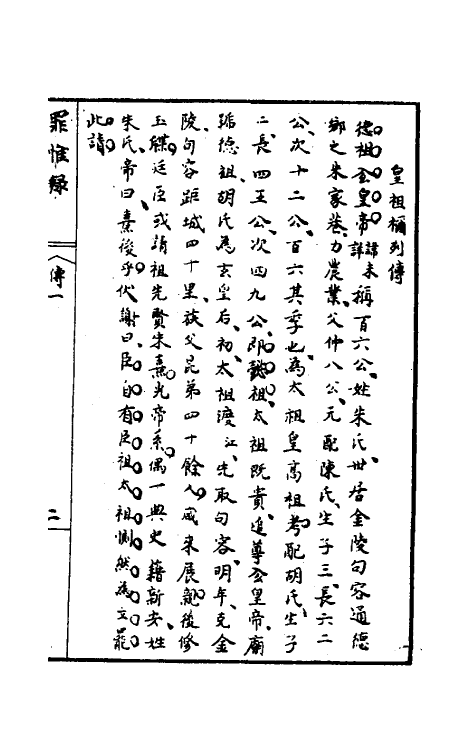 皇祖禰列傳
德祖玄皇帝諱未詳稱百六公姓朱氏世居金陵句容通德
鄉之朱家巷力農業父仲八公元配陳氏生子三長六二
公次十二公百六其季也為太祖皇高祖考配胡氏生子
二長四五公次四九公即懿祖太祖既貴追尊玄皇帝廟
號德祖胡氏為玄皇后初太祖渡江先取句容明年克金
陵句容距城四十里族父兄弟四十餘人咸來展親後修
玉牒廷臣或請祖先賢朱熹光帝系偶一典史藉新安姓
朱氏帝曰熹後乎伏謝曰臣自有臣祖太祖惻然為立罷
此請
罪惟錄
傳一
二